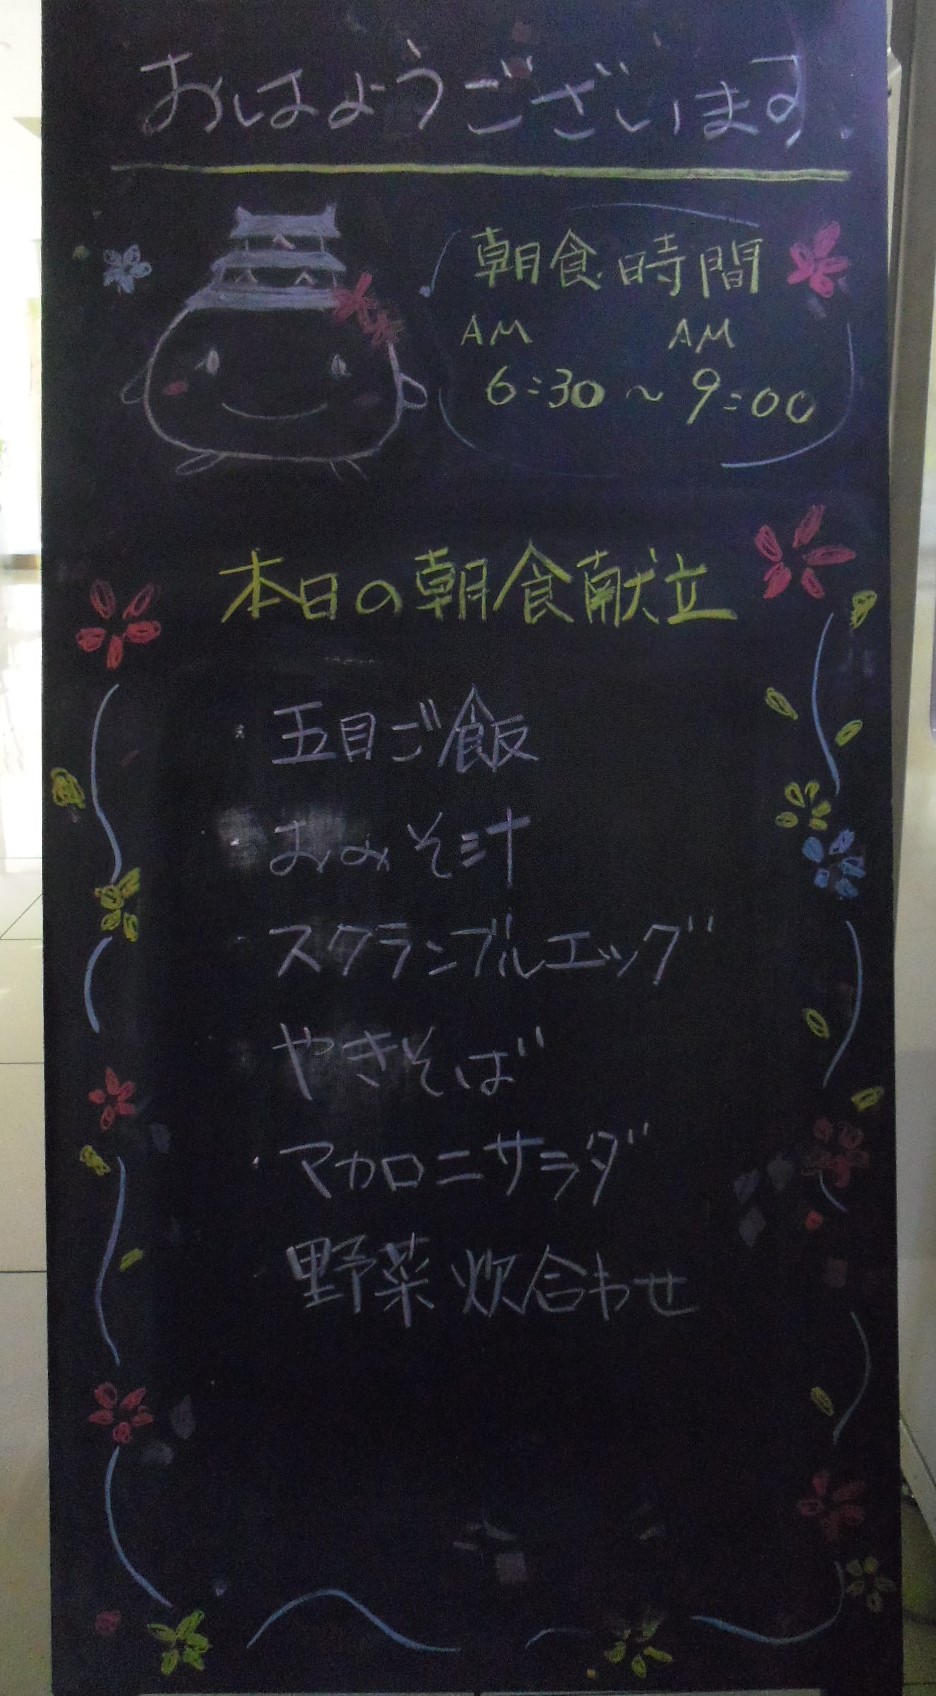 おはようございます.
朝食時間
AM AM
6:30~9:00
本日の朝食献立
・五目ご飯
・おみそ汁
・スクランブルエッグ
やきそば
・マカロニサラダ
野菜炊合わせ